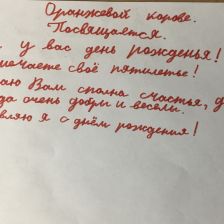 Оранжевой корове.
Посвящается.
у вас день рожденья!
свой пятилетье!
Вам сполна счастья,
очень добры и веселы.
я с днём рождения!